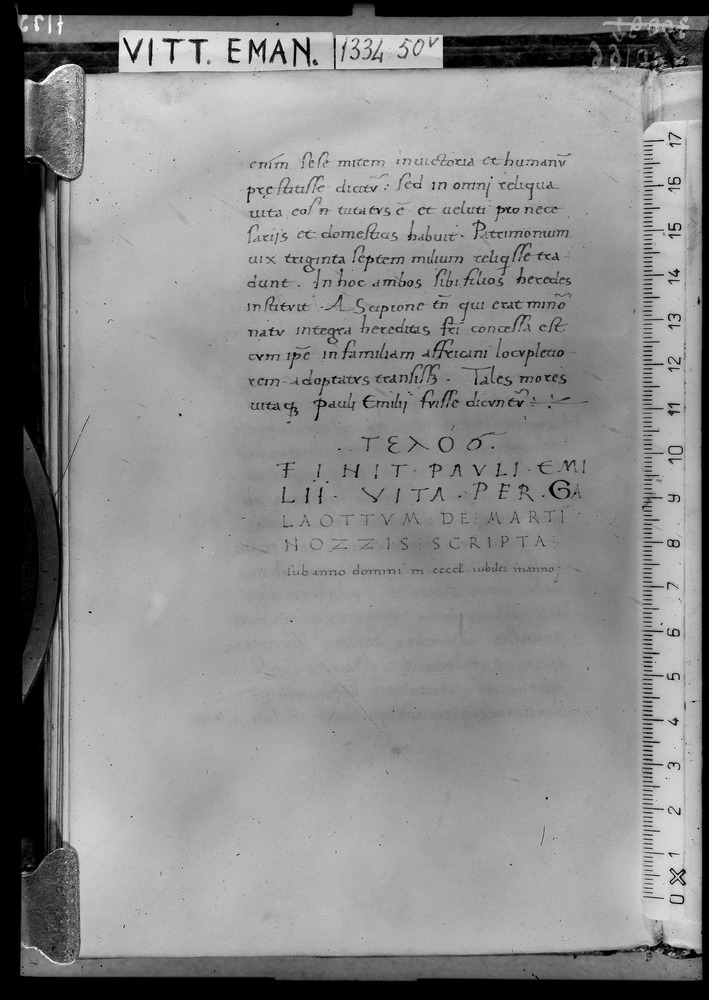 VITT. EMAN. 1334 50v
enim sese mitem in uictoria et humanū
pręstitisse dicitū : sed in omnj reliqua
uita eos̄n tutatvs ē et ueluti pro nece
sarijs et domesticis habuit. Patrimonium
uix triginta septem milium reliq̄sse tra
dunt. In hoc ambos sibi filios heredes
instituit . A Scipione tn̄ qui erat minō
natv integra hereditas frī concessa est
cvm ip̄e in familiam affricani locvpletio
rem adoptatvs transissꝫ. Tales mores
uitaqꝫ pauli Emilij fvisse dicvntv̄ :
. ΤΕΛΟσ.
FINIT . PAVLI . EMI
LII . VITA . PER . GA
LAOTTVM : DE : MARTI
NOZZIS : SCRIPTA :
sub anno domini m cccc l iubilei in anno :
17
16
15
14
13
12
11
10
9
8
7
6
5
4
3
2
1
0